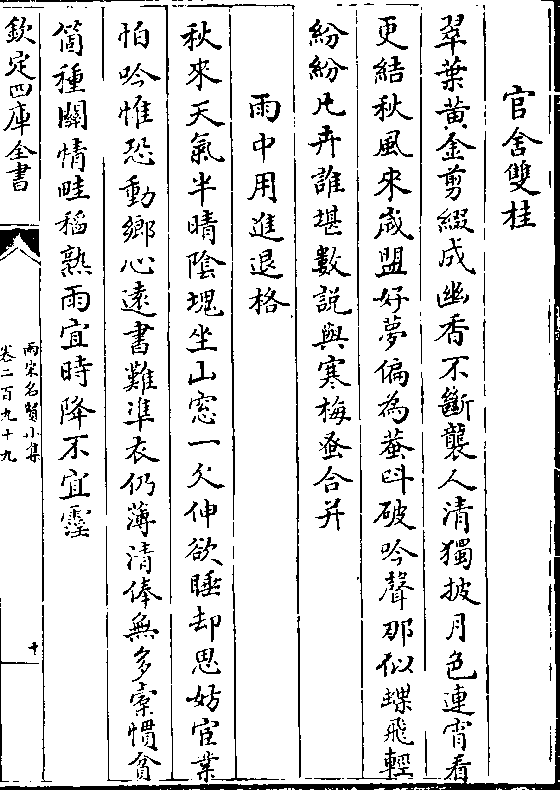 官舍雙桂
翠葉黃金剪綴成幽香不斷襲人清獨披月色連宵看
更結秋風來歲盟好夢偏為蛩呌破吟聲那似蝶飛輕
紛紛凡卉誰堪數説與寒梅蚤合并
雨中用進退格
秋來天氣半晴陰塊坐山窓一欠伸欲睡却思妨宦業
怕吟惟恐動鄉心遠書難凖衣仍薄清俸無多橐慣貧
箇種關情畦稻熟雨宜時降不宜霪
欽定四庫全書
兩宋名賢小集
卷二百九十九
十